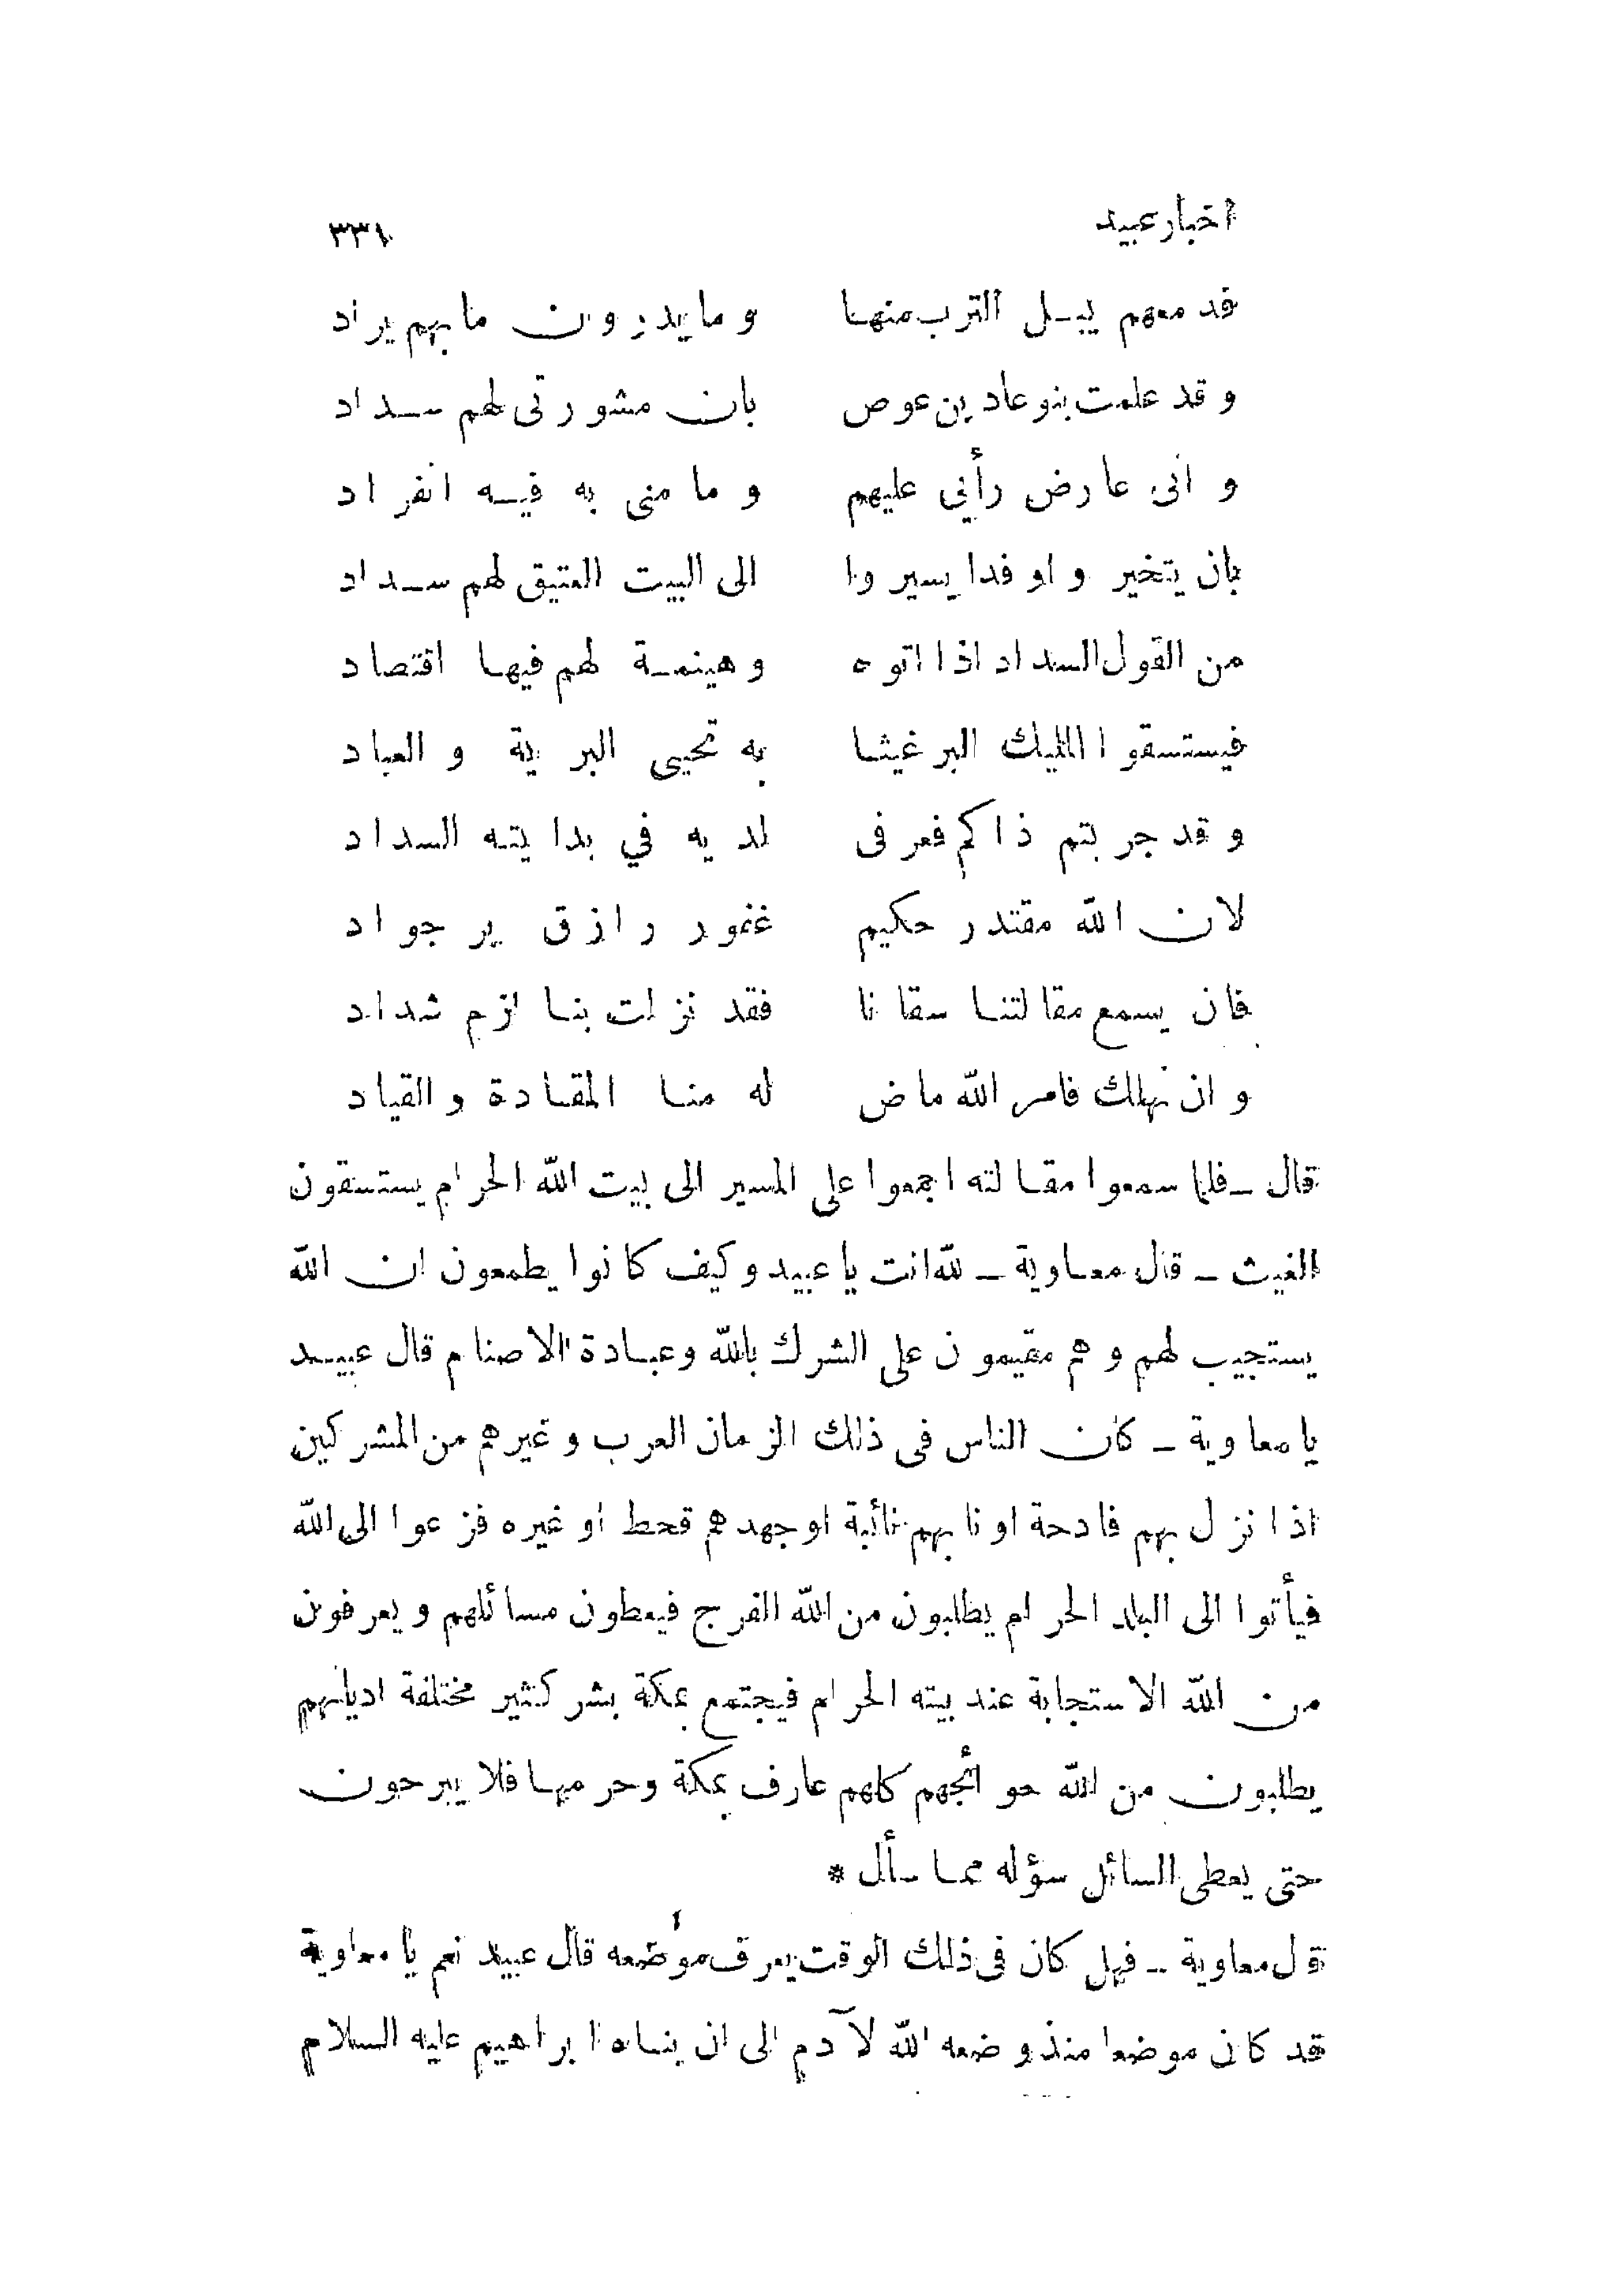 اخبار عبيد ٣٣١
فدمعهم يبــل الترب منهـا وما يدرون ما بهم يراد
وقد علمت بنو عاد بن عوص بان مشورتى لهم ســداد
وانى عارض رأيي عليهم وما منى به فيــه انفراد
بان يتخيروا وفدا يسيروا الى البيت العتيق لهم ســداد
من القول السداد اذا اتوه وهينمـة لهم فيهـا اقتصاد
فيستسقوا المليك البر غيثـا به تحيى البرية والعباد
وقد جربتم ذاكم فعرفى لديه في بدايتـه السداد
لان الله مقتدر حكيم غفور رازق بر جواد
فان يسمع مقالتنـا سقانا فقد نزلت بنـا لزم شداد
وان نهلك فامر الله ماض له منـا المقـادة والقياد
قال ــ فلما سمعوا مقـالته اجمعوا على المسير الى بيت الله الحرام يستسقون
الغيث ــ قال معـاوية ــ لله انت يا عبيد وكيف كانوا يطمعون ان الله
يستجيب لهم وهم مقيمون على الشرك بالله وعبـادة الاصنام قال عبيــد
يا معاوية ــ كان الناس فى ذلك الزمان العرب وغيرهم من المشركين
اذا نزل بهم فادحة او نابهم نائبة او جهدهم قحط او غيره فزعوا الى الله
فيأتوا الى البلد الحرام يطلبون من الله الفرج فيعطون مسائلهم ويعرفون
من الله الاستجابة عند بيته الحرام فيجتمع بمكة بشر كثير مختلفة اديانهم
يطلبون من الله حوائجهم كلهم عارف بمكة وحرمتهـا فلا يبرحون
حتى يعطى السائل سؤله ممـا سأل *
قال معاوية ــ فهل كان فى ذلك الوقت يعرف موضعه قال عبيد نعم يا معاوية
قد كان موضعا منذ وضعه الله لآدم الى ان بنـاه ابراهيم عليه السلام